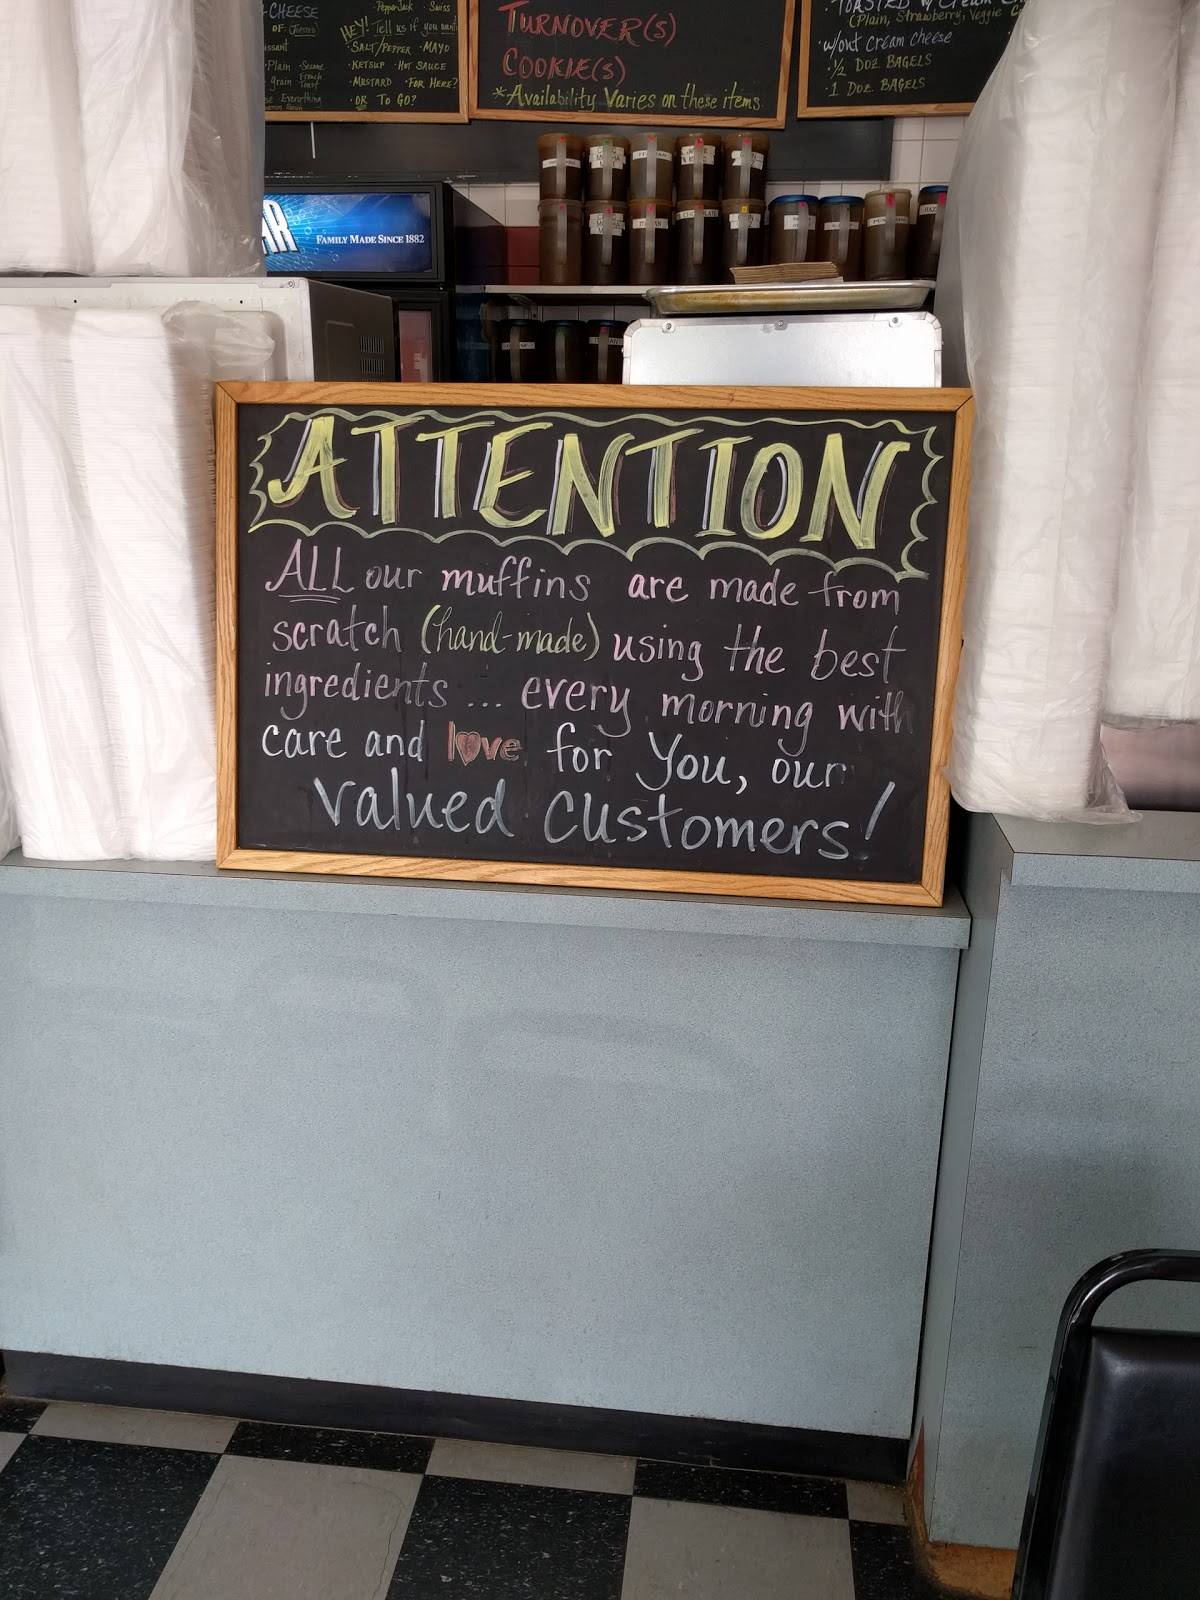 CHEESE
OF TOASTED
Plain Sesame
grain French
Toast
Everything
PepperJack Swiss
HEY! Tell us if you want
SALT/PEPPER MAYO
KETSUP HOT SAUCE
MUSTARD FOR HERE?
OR TO GO?
TURNOVER(S)
COOKIE(S)
*Availability Varies on these items
TOASTED w/ Cream
(Plain, Strawberry, Veggie
w/out cream cheese
½ DOZ. BAGELS
1 DOZ. BAGELS
FAMILY MADE SINCE 1882
ATTENTION
ALL our muffins are made from
scratch (hand-made) using the best
ingredients ... every morning with
care and love for you, our
valued customers!